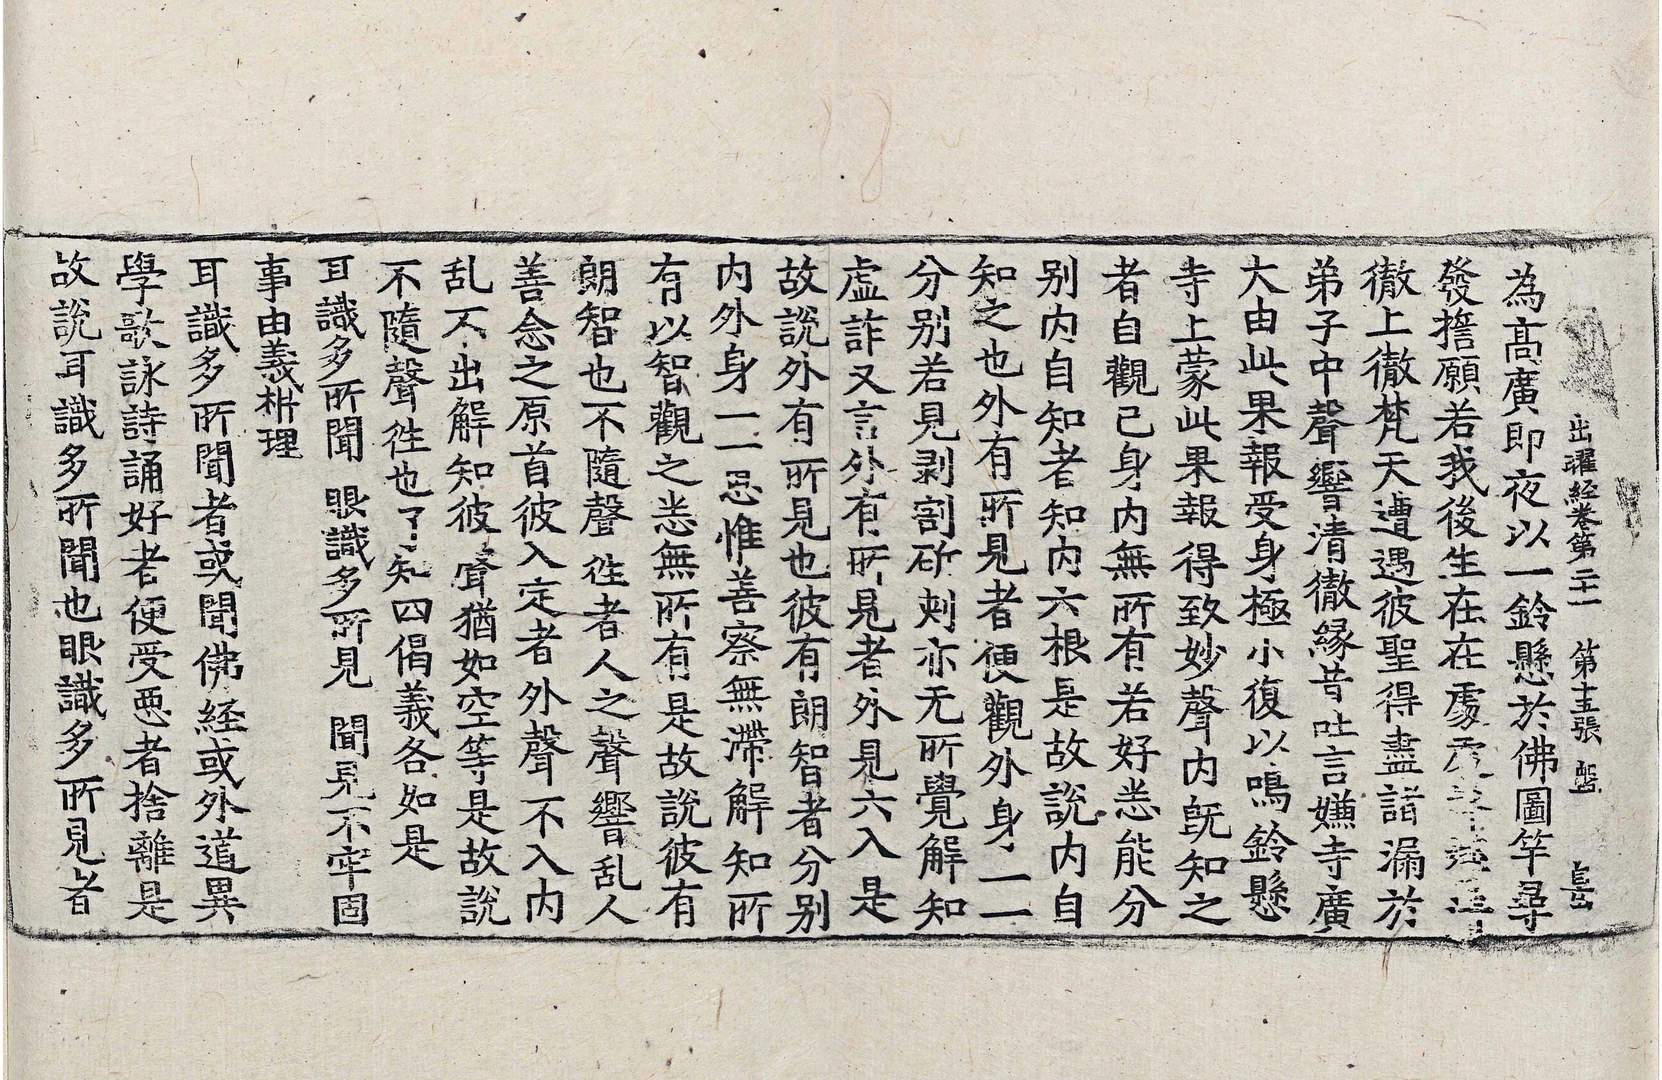 出曜経卷第二十一 第十五張 盤
為高廣即夜以一鈴懸於佛圖竿尋
發擔願若我後生在在處處
徹上徹梵天遭遇彼聖得盡諸漏於
弟子中聲響清徹緣昔吐言嫌寺廣
大由此果報受身極小復以鳴鈴懸
寺上蒙此果報得致妙聲内既知之
者自觀己身内無所有若好恙能分
别内自知者知内六根是故説内自
知之也外有所見者便觀外身一一
分别若見剥割斫刾亦无所覺解知
虚詐又言外有所見者外見六入是
故説外有所見也彼有朗智者分别
内外身一一思惟善察無滯解知所
有以智觀之恙無所有是故説彼有
朗智也不隨聲徃者人之聲響乱人
善念之原首彼入定者外聲不入内
乱不出解知彼聲猶如空等是故説
不隨聲徃也了知四偈義各如是
耳識多所聞 眼識多所見 聞見不牢固
事由義枡理
耳識多所聞者或聞佛經或外道異
學歌詠詩誦好者便受惡者捨離是
故説耳識多所聞也眼識多所見者